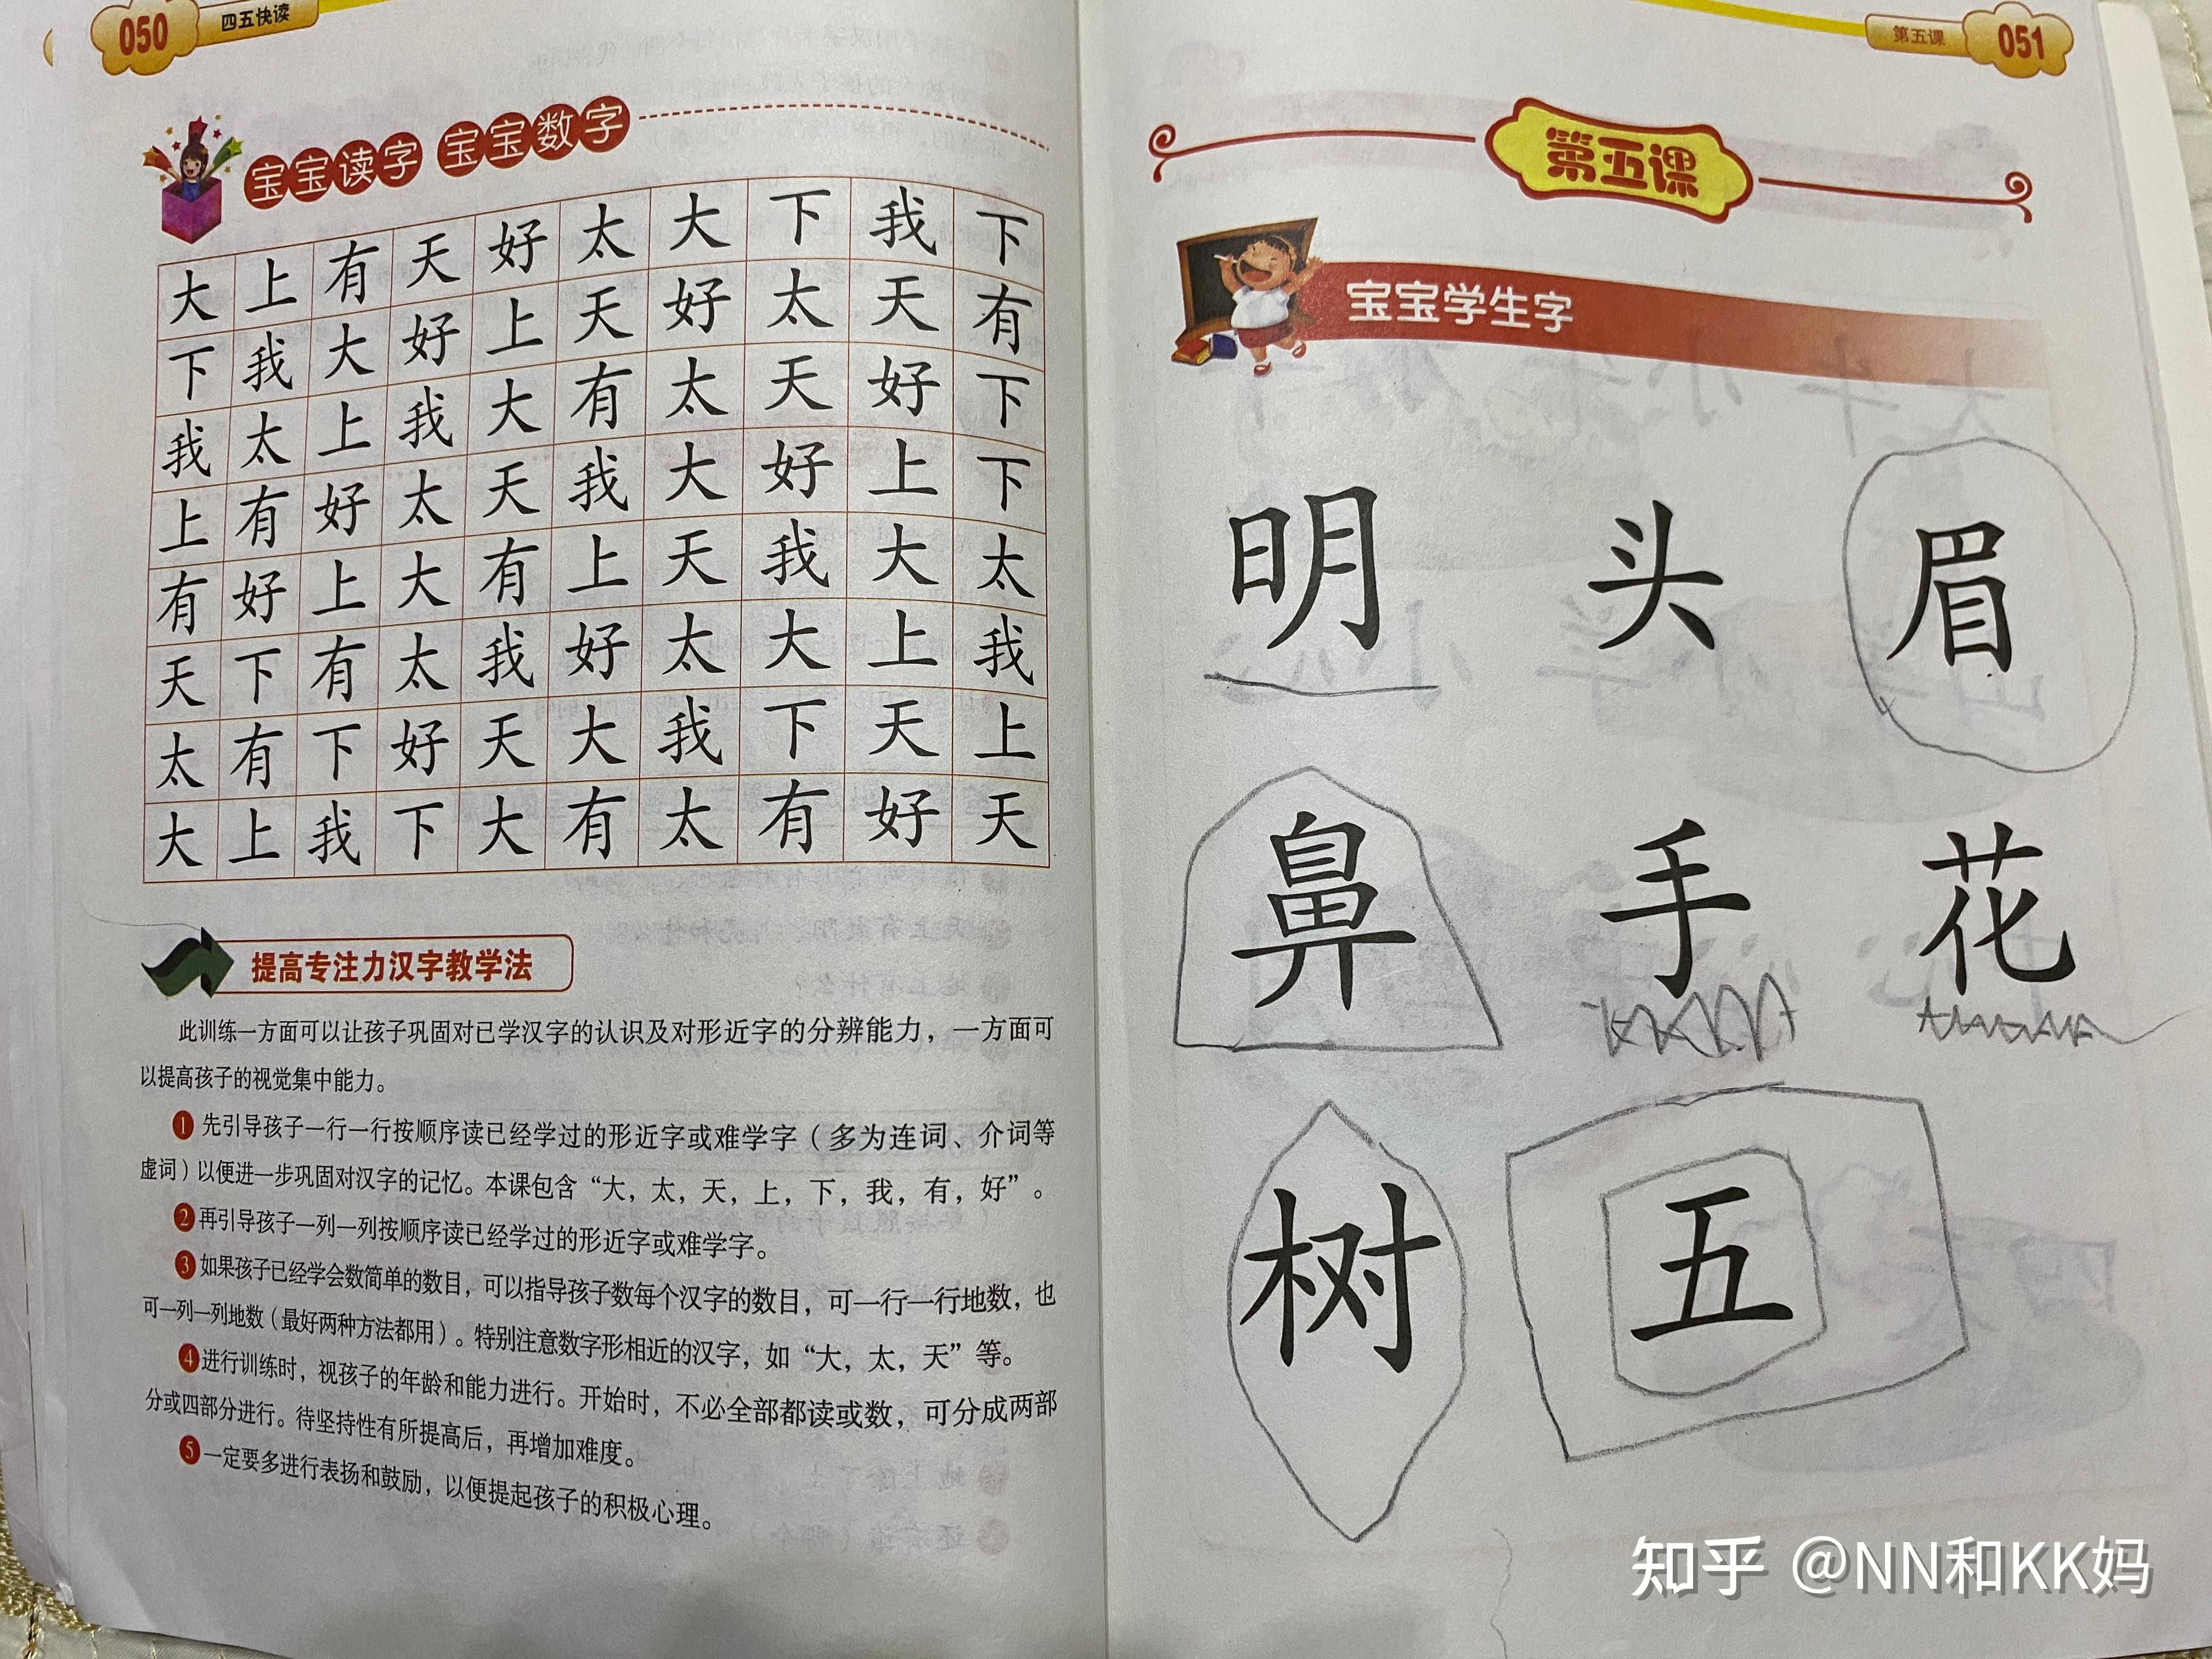 050 四五快读
宝宝读字 宝宝数字
大 上 有 天 好 太 大 下 我 下
下 我 大 好 上 天 好 太 天 有
我 太 上 我 大 有 太 天 好 下
上 有 好 太 天 我 大 好 上 下
有 好 上 大 有 上 天 我 大 太
天 下 有 太 我 好 太 大 上 我
太 有 下 好 天 大 我 下 天 上
大 上 我 下 大 有 太 有 好 天
提高专注力汉字教学法
此训练一方面可以让孩子巩固对已学汉字的认识及对形近字的分辨能力，一方面可
以提高孩子的视觉集中能力。
1 先引导孩子一行一行按顺序读已经学过的形近字或难学字（多为连词、介词等
虚词）以便进一步巩固对汉字的记忆。本课包含“大，太，天，上，下，我，有，好”。
2 再引导孩子一列一列按顺序读已经学过的形近字或难学字。
3 如果孩子已经学会数简单的数目，可以指导孩子数每个汉字的数目，可一行一行地数，也
可一列一列地数（最好两种方法都用）。特别注意数字形相近的汉字，如“大，太，天”等。
4 进行训练时，视孩子的年龄和能力进行。开始时，不必全部都读或数，可分成两部
分或四部分进行。待坚持性有所提高后，再增加难度。
5 一定要多进行表扬和鼓励，以便提起孩子的积极心理。
第五课 051
第五课
宝宝学生字
明 头 眉
鼻 手 花
树 五
知乎 @NN和KK妈